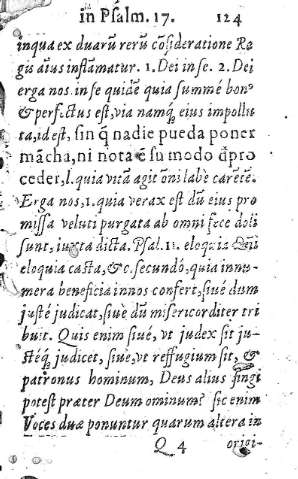 in Psalm. 17. 124
inqua ex duarũ rerũ cõsideratione Re
gis aĩus inflamatur. 1. Dei in se. 2. Dei
erga nos. in se quidẽ quia summè bonꝰ
& perfectus est, via namq́ eius impollu
ta, id est, sin q̃ nadie pueda poner
mãcha, ni nota ẽ su modo d̃ pro
ceder, l. quia vitã agit õni labè carẽtẽ.
Erga nos, 1. quia verax est dũ eius pro
missa veluti purgata ab omni fece doli
sunt, iuxta dicta. Psal. 11. eloquia
eloquia casta, &c. secundò, quia innu-
mera beneficia in nos confert, siuè dum
justè judicat, siuè dũ misericorditer tri
buit. Quis enim siuè, vt judex sit ju-
stéq́ judicet, siuè, vt reffugium sit, &
patronus hominum, Deus alius fingi
potest præter Deum ominum? sic enim
Voces duæ ponuntur quarum altera in
Q 4 origi-